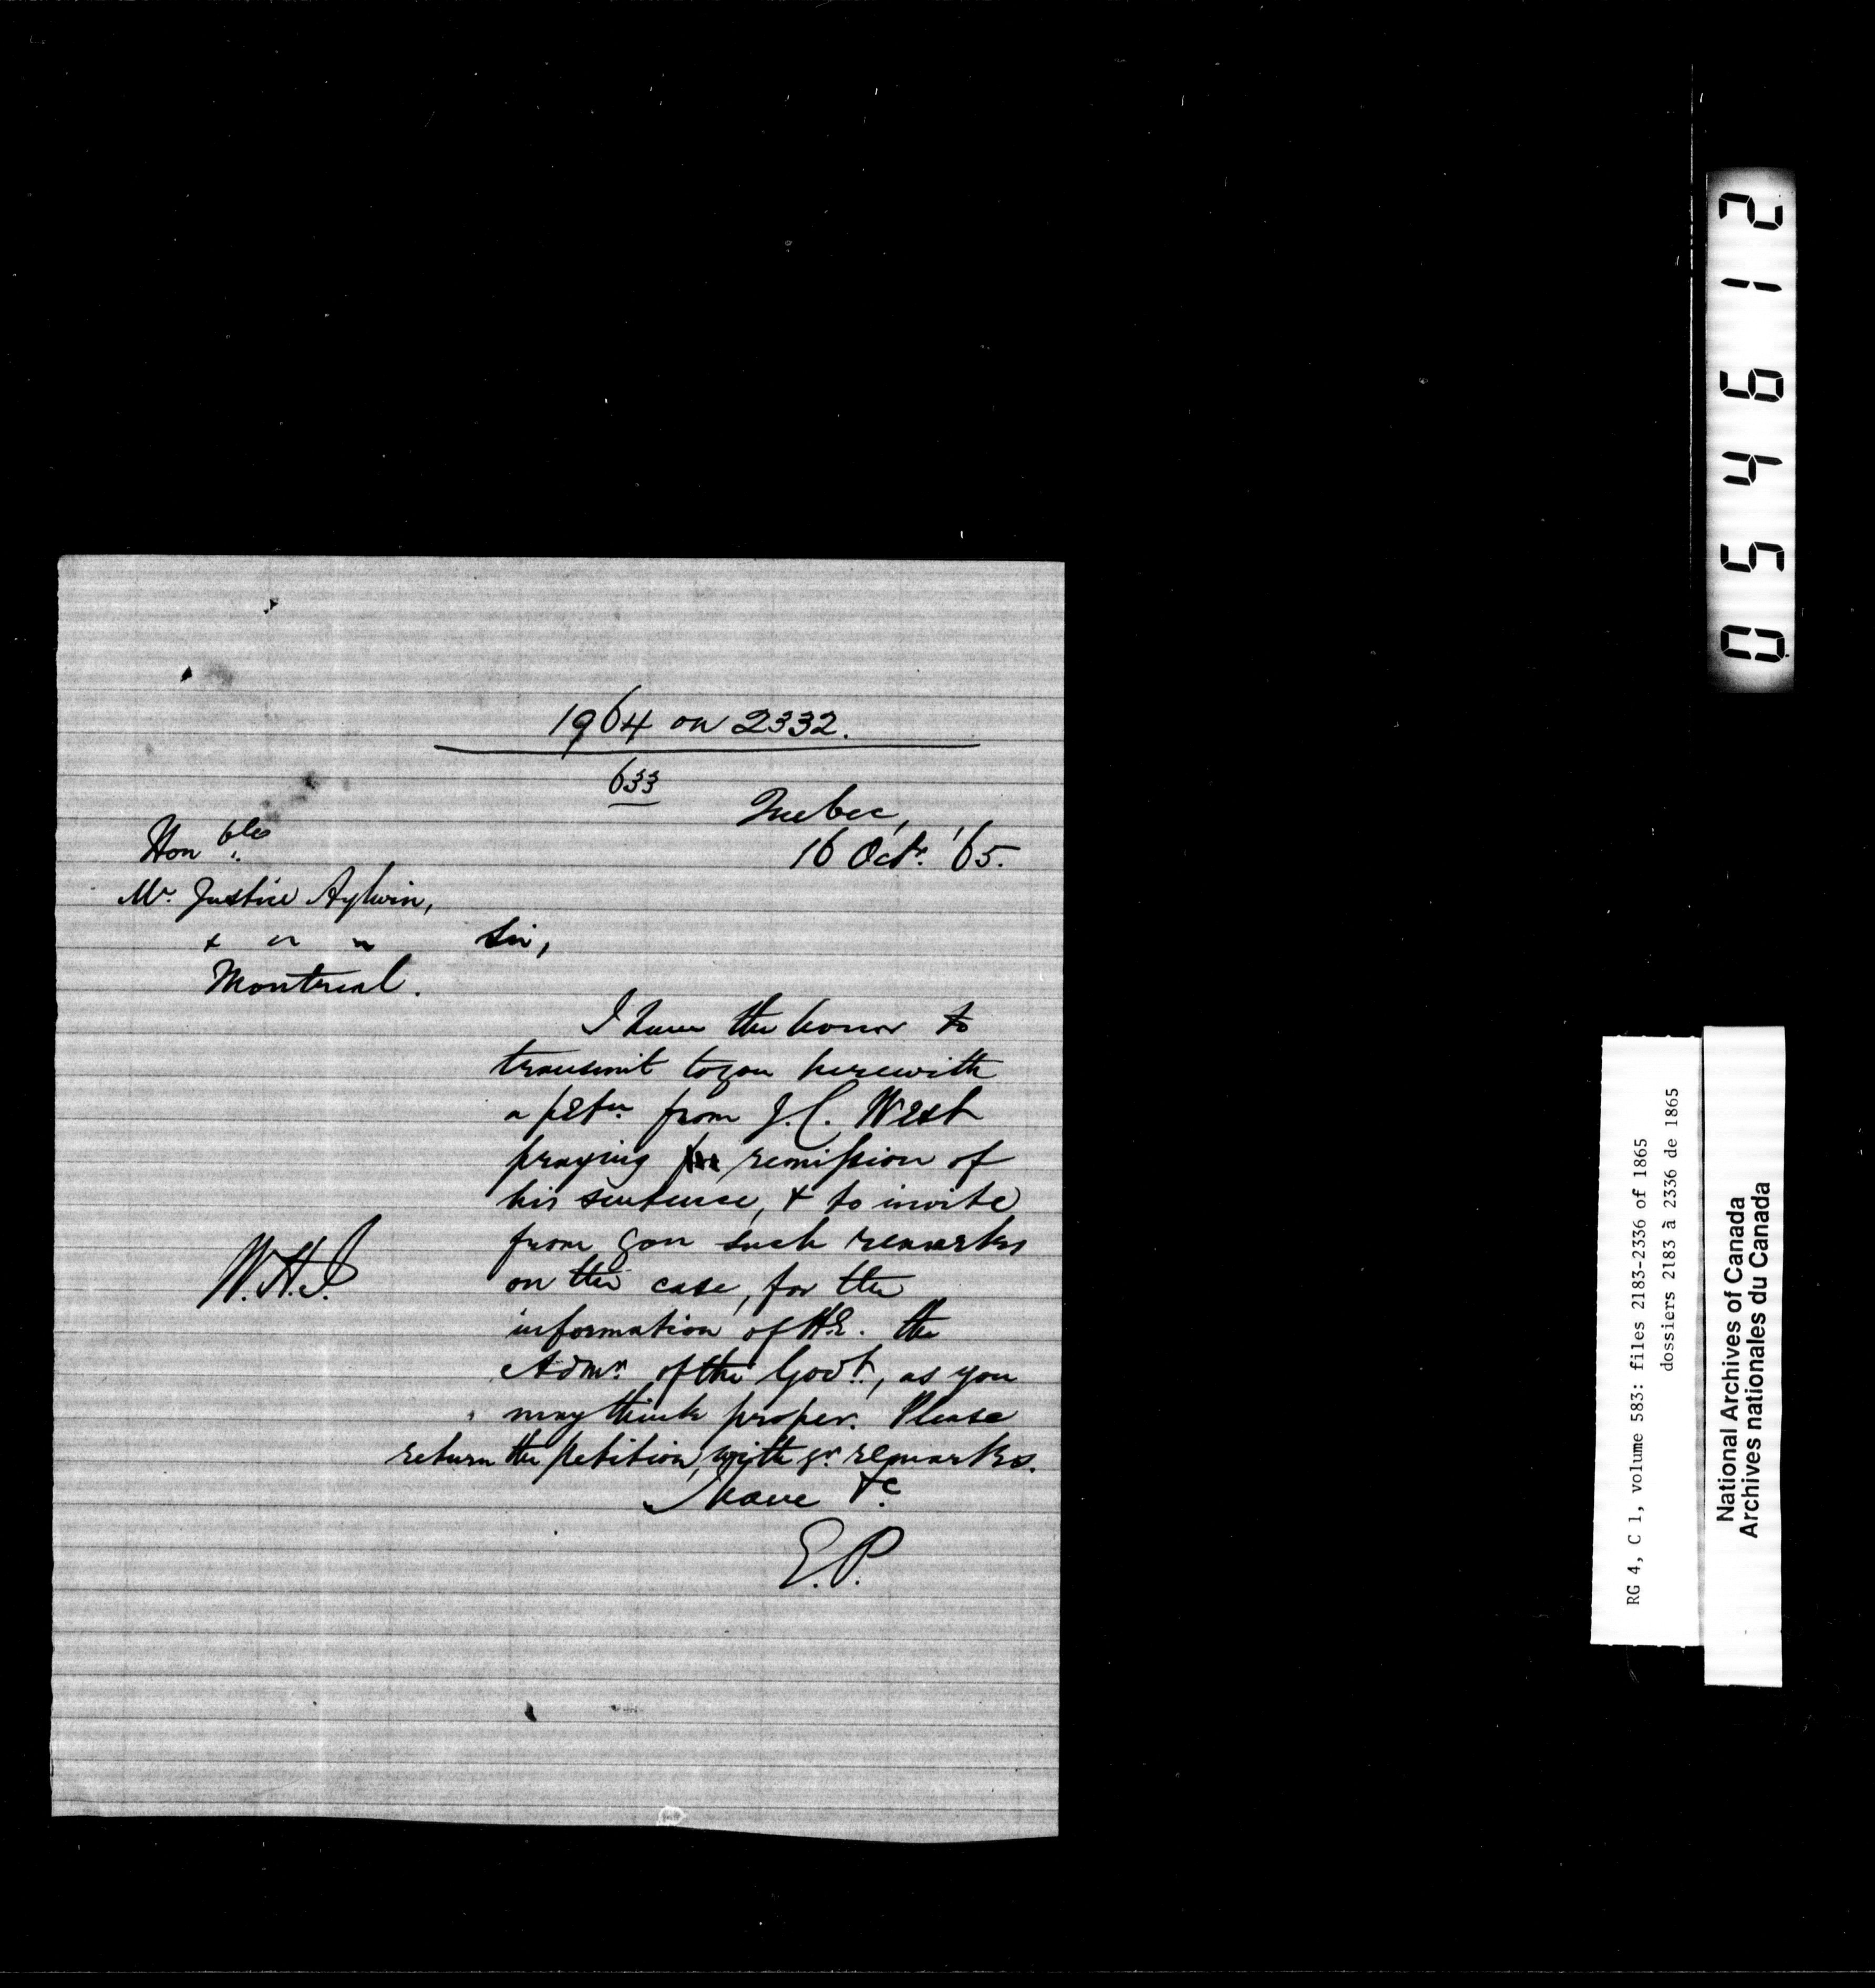 1964 on 2332.
633
Quebec,
16 Octr. '65.
Honble
Mr. Justice Aylwin,
& " "
Montreal.
Sir,
I have the honor to
transmit to you herewith
a petn from J.C. West
praying for remission of
his sentence, & to invite
from you such remarks
on the case, for the
information of H.E. the
Admr. of the Govt., as you
may think proper. Please
return the petition, with yr. remarks.
I have &c
E.P.
W.H.J.
054612
RG 4, C 1, volume 583: files 2183-2336 of 1865
dossiers 2183 à 2336 de 1865
National Archives of Canada
Archives nationales du Canada